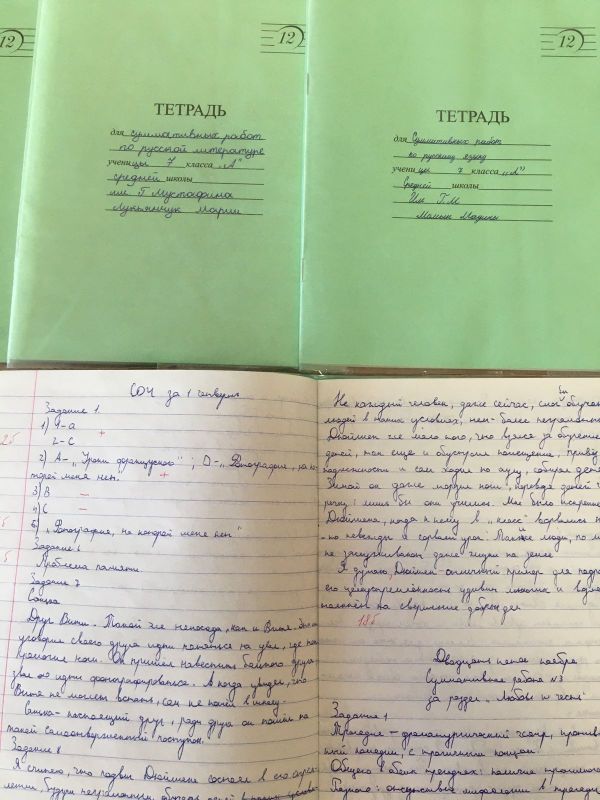 12
12
12
ТЕТРАДЬ
для суммативных работ
по русской литературе
учени цы 7 класса „А"
средней школы
им Г Мустафина
Лукьянчук Марии
ТЕТРАДЬ
для Суммативных работ
по русскому языку
учени цы 7 класса „А"
Средней школы
Им Г.М
Мадины
СОЧ за 1 четверть
Задание 1.
1) 1-а
2-С
2б
2) А- „Уроки французского" ; D- „Фотография, на ко-
торой меня нет.
3) В
4) С
5) „Фотография, на которой меня нет"
Задание 6
Проблема памяти.
Задание 7
Санька
Друг Вити. Такой же непоседа, как и Витя.
уговорил своего друга идти кататься на увал, где
ноги. Он пришёл навестить больного друга,
звал его идти фотографироваться. А когда увидел, что
Витя не может встать, сам не пошёл в школу.
Санька- настоящий друг, ради друга он пошёл на
такой самоотверженный поступок.
Задание 8
Я считаю, что подвиг Дюйшена состоял в его
будучи неграмотным,
Не каждый человек, даже сейчас, смог бы
людей в таких условиях, тем более неграмотный
Дюйшен же мало того, что взялся за обучение
детей, так ещё и обустроил помещение,
и сам ходил по аулу, собирал детей
Зимой он даже морозил ноги, переводя детей через
речку; лишь бы они учились. Мне было искренне
Дюйшена, когда к нему в „класс" ворвались
невежды и сорвали урок. Такие люди, по
не заслуживают даже жизни на земле.
Я думаю, Дюйшен-отличный пример для
его целеустремлённость удивит многих и
на свершение добрых дел
18б
Двадцать пятое ноября
Суммативная работа №3
за раздел „Любовь и честь"
Задание 1
Трагедия - драматургический жанр,
комедии, с трагичным концом.
Общего в обеих трагедиях: наличие трагичного